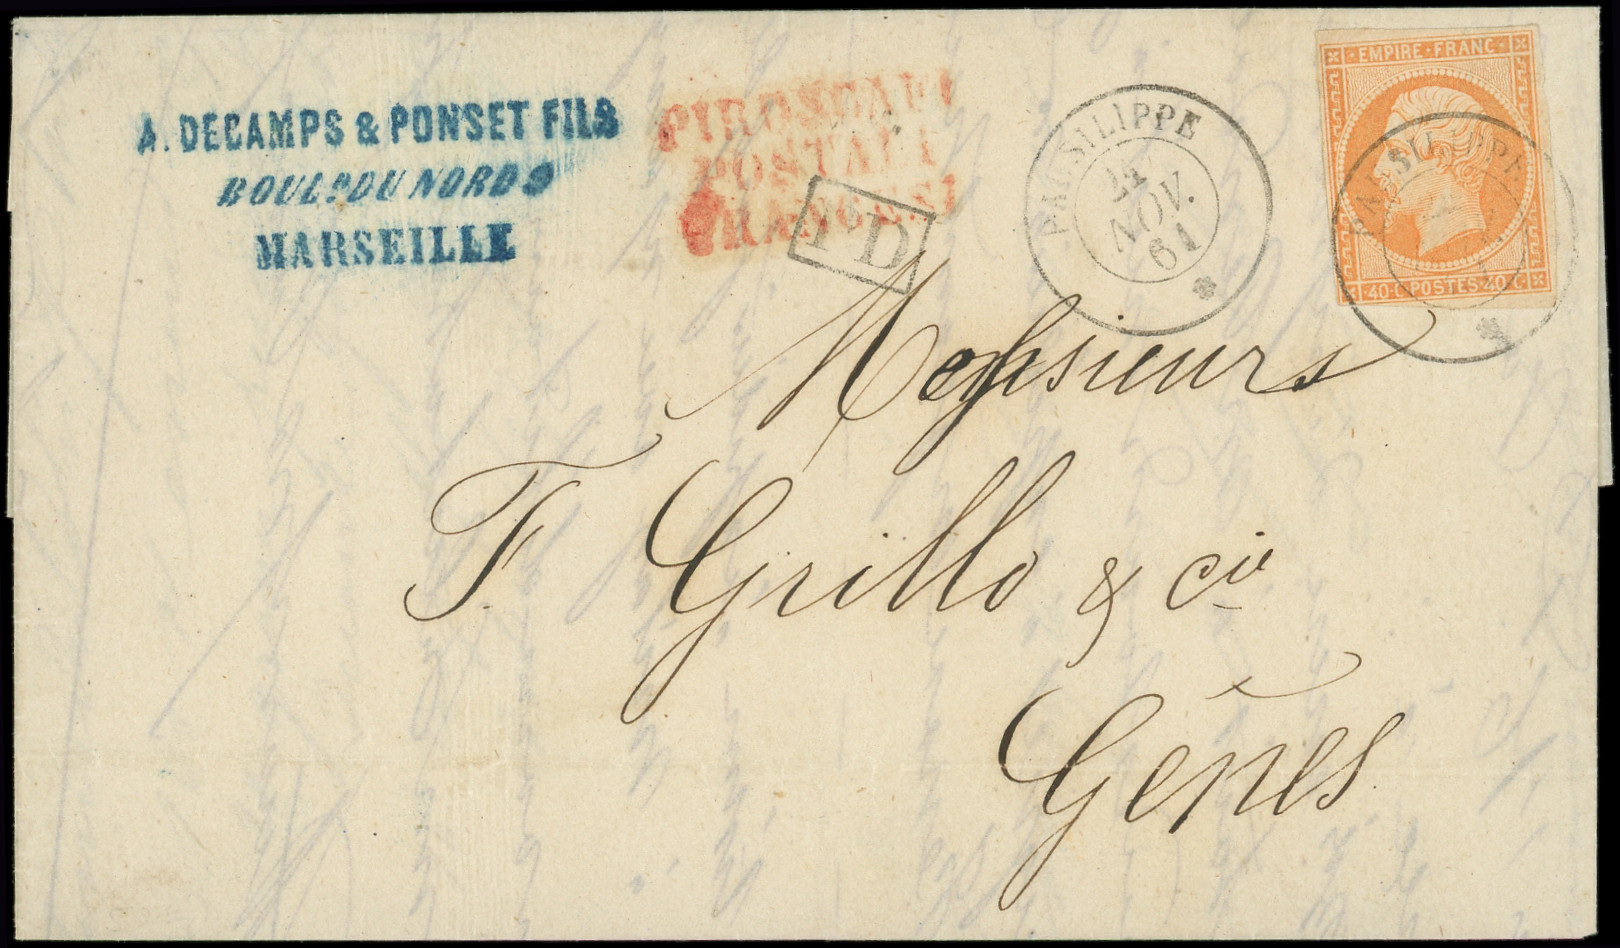 A. DECAMPS & PONSET FILS
BOULD DU NORD 9
MARSEILLE
PIROSCAFI
POSTALI
FRANCESI
PD
PAUSILIPPE
NOV.
61
EMPIRE · FRANC ·
40 · C POSTES · 40 · C
PAUSILIPPE
Messieurs
F Grillo & Cie
Gênes